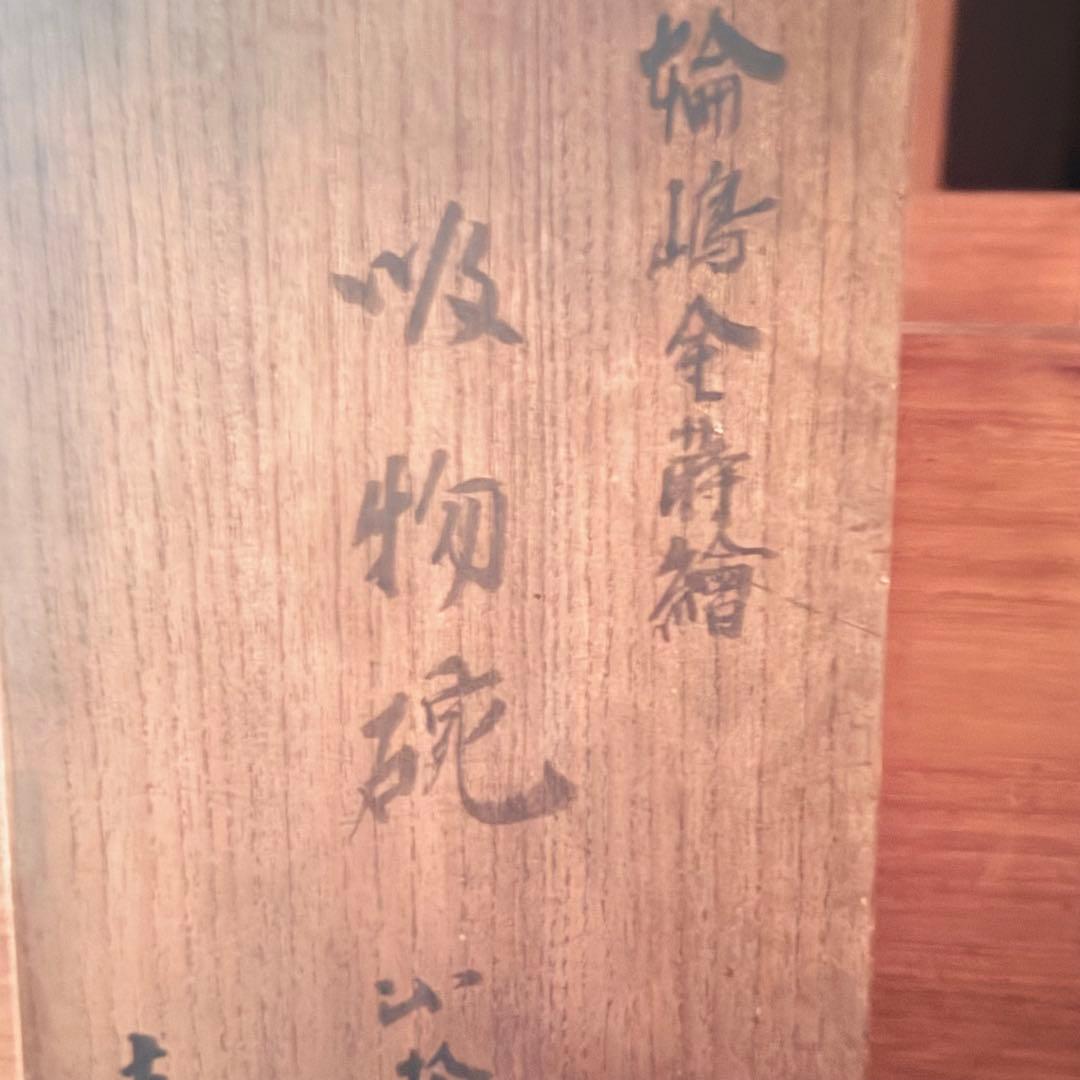 輪嶋金蒔繪
吸物碗